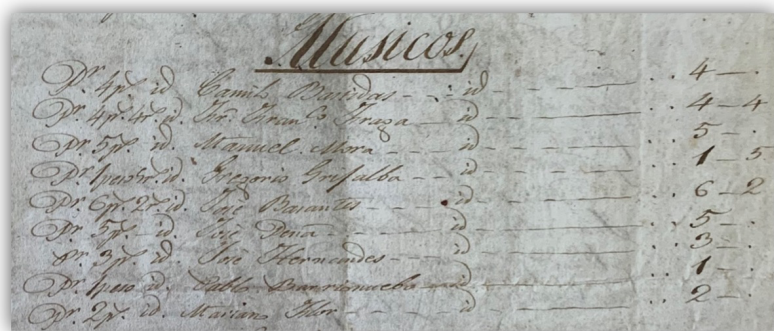 Musicos.
Pr. 4ps. id Camilo Bastidas - - id - - - - - .. 4 — .
Pr. 4ps. 4rs. id. Franco. Fraga id - - - - .. 4 — 4
Pr. 5ps. id. Manuel Mora - - id - - - - - .. 5 — .
Pr. 1peso id. Gregorio Grisalba - - id - - - - .. 1 — 5
Pr. 6ps. 2rs. id. José Barantes - - id - - - - .. 6 — 2
Pr. 5ps. id. José Peña - - id - - - - .. 5 — .
Pr. 3ps. id José Hernandes - - id - - - - .. 3 — .
Pr. 1peso id. Pablo Barrionuebo - id - - - - .. 1 — .
Pr. 2ps. id. Mariano Flor - - - id - - - - .. 2 — .